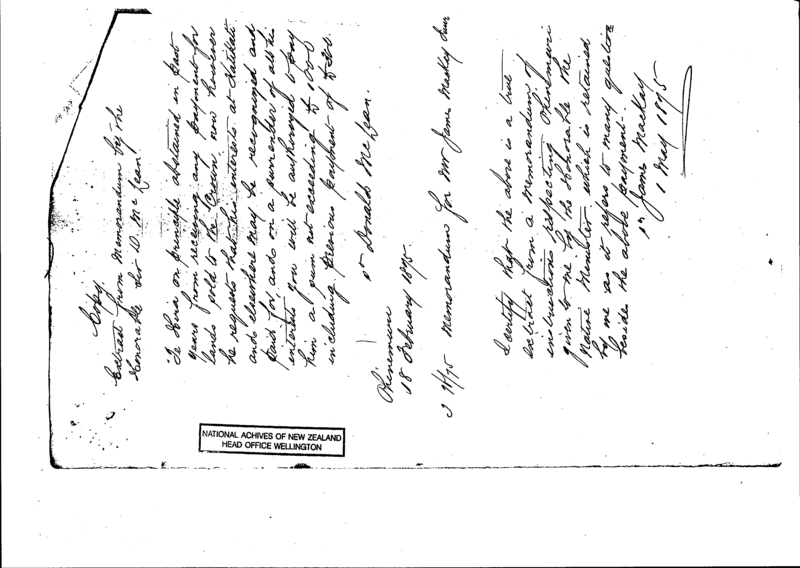 Copy
Extract from Memorandum by the
Honorable Sir D. McLean
Te Hira on principle abstained in past
years from receiving any payment for
lands sold to the Crown now however
he requests that his interests at Katikati
and elsewhere may be recognized and
paid for, and on a surrender of all his
interests you will be authorized to pay
him a sum not exceeding £1000
including previous payment of £200.
Donald McLean.
Ohinemuri
18 February 1875.
Memorandum for Mr James Mackay Junr
I certify that the above is a true
extract from a Memorandum of
instructions respecting Ohinemuri
given to me by the Honorable the
Native Minister which is retained
by me as it refers to many questions
besides the above payment.
James Mackay
1 May 1875
NATIONAL ACHIVES OF NEW ZEALAND
HEAD OFFICE WELLINGTON